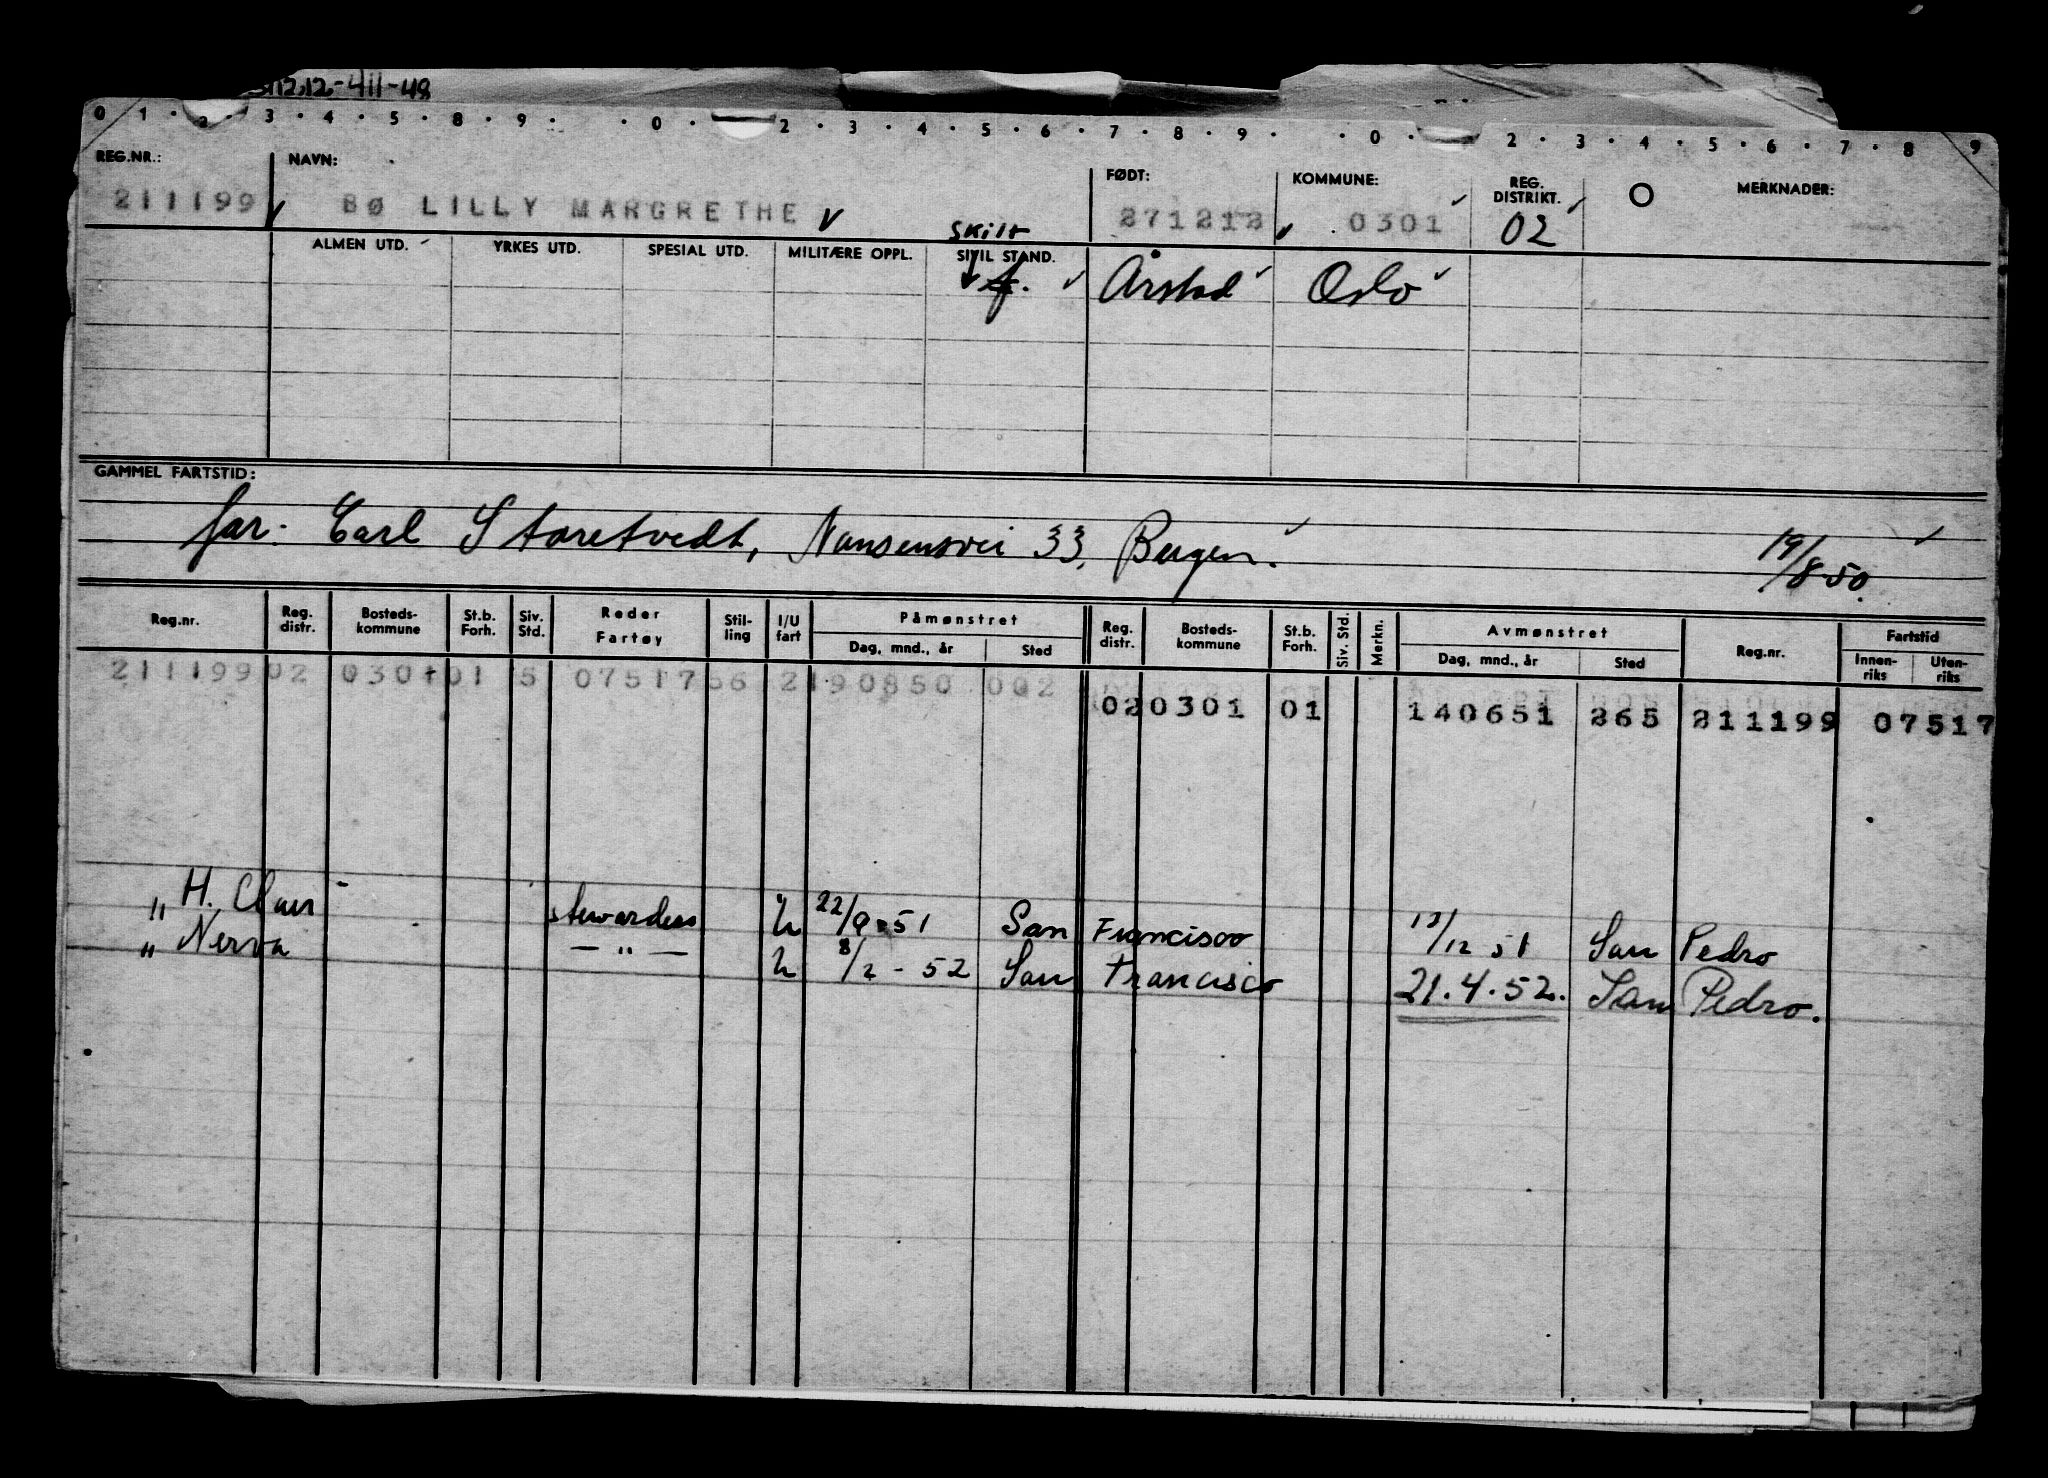 12.12-411-48
0 1 · 2 · 3 · 4 · 5 · 8 · 9 · · 0 · 2 · 3 · 4 · 5 · 6 · 7 · 8 · 9 · · 0 · 2 · 3 · 4 · 5 · 6 · 7 · 8 9
REG.NR.: NAVN: FØDT: KOMMUNE: REG. DISTRIKT. O MERKNADER:
211199 BØ LILLY MARGRETHE 271212 0301 02
Skilt
ALMEN UTD. YRKES UTD. SPESIAL UTD. MILITÆRE OPPL. SIVIL STAND.
f. Årstad Oslo
GAMMEL FARTSTID:
far: Carl Storetvedt, Nansensvei 33, Bergen. 19/8 50.
Reg.nr. Reg. distr. Bosteds-kommune St.b. Forh. Siv. Std. Reder Fartøy Stil-ling I/U fart Påmønstret Reg. distr. Bosteds-kommune St.b. Forh. Siv. Std. Merkn. Avmønstret Reg.nr. Fartstid
Dag, mnd., år Sted Dag, mnd., år Sted Innen-riks Uten-riks
211199 02 0301 01 5 07517 56 2 190850 002
02 0301 01 140651 265 211199 07517
" H. Clan stewardess u 22/9-51 San Francisco 13/12 51 San Pedro
" Nerva — " — u 8/2 - 52 San Francisco 21.4.52. San Pedro.